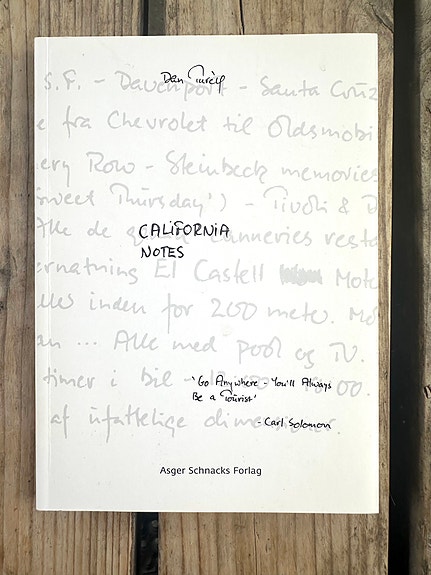 Dan Turèll
S.F. - Davenport - Santa Cruz
e fra Chevrolet til Oldsmobi
ery Row - Steinbeck memories
weet Thursday') - Tivoli & D
CALIFORNIA
Alle de canneries resta
NOTES
ernatning El Castell Mote
alles inden for 200 meter. Mo
an ... Alle med pool og TV.
'Go Anywhere - You'll Always
timer i bil - 00.
Be a Tourist'
- Carl Solomon
af ufattelige dimensioner.
Asger Schnacks Forlag